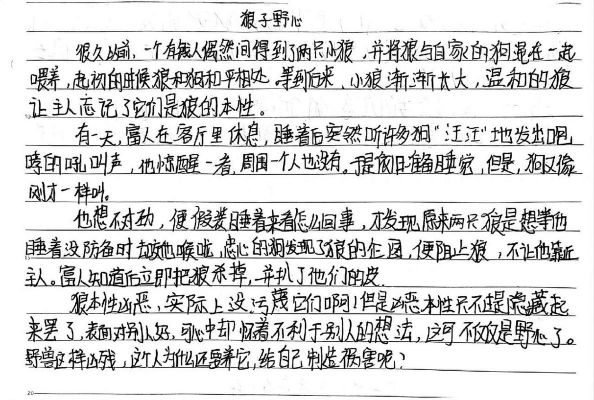 狼子野心
很久以前,一个有钱人偶然间得到了两只小狼,并将狼与自家的狗混在一起
喂养,起初的时候狼和狗和平相处,等到后来,小狼渐渐长大,温和的狼
让主人忘记了它们是狼的本性。
有一天,富人在客厅里休息,睡着后突然听许多狗“汪汪”地发出咆
哮的吼叫声,他惊醒一看,周围一个人也没有。于是闭目准备睡觉,但是,狗又像
刚才一样叫。
他想不对劲,便假装睡着来看怎么回事,才发现原来两只狼是想等他
睡着没防备时去咬他喉咙,忠心的狗发现了狼的企图,便阻止狼,不让他靠近
主人。富人知道后立即把狼杀掉,并扒了他们的皮。
狼本性凶恶,实际上没污蔑它们啊!但是凶恶本性只不过是隐藏起
来罢了,表面对别人好,可心中却怀着不利于别人的想法,这可不仅仅是野心了。
野兽这样凶残,这个人为什么还要养它,给自己制造祸害呢?
20